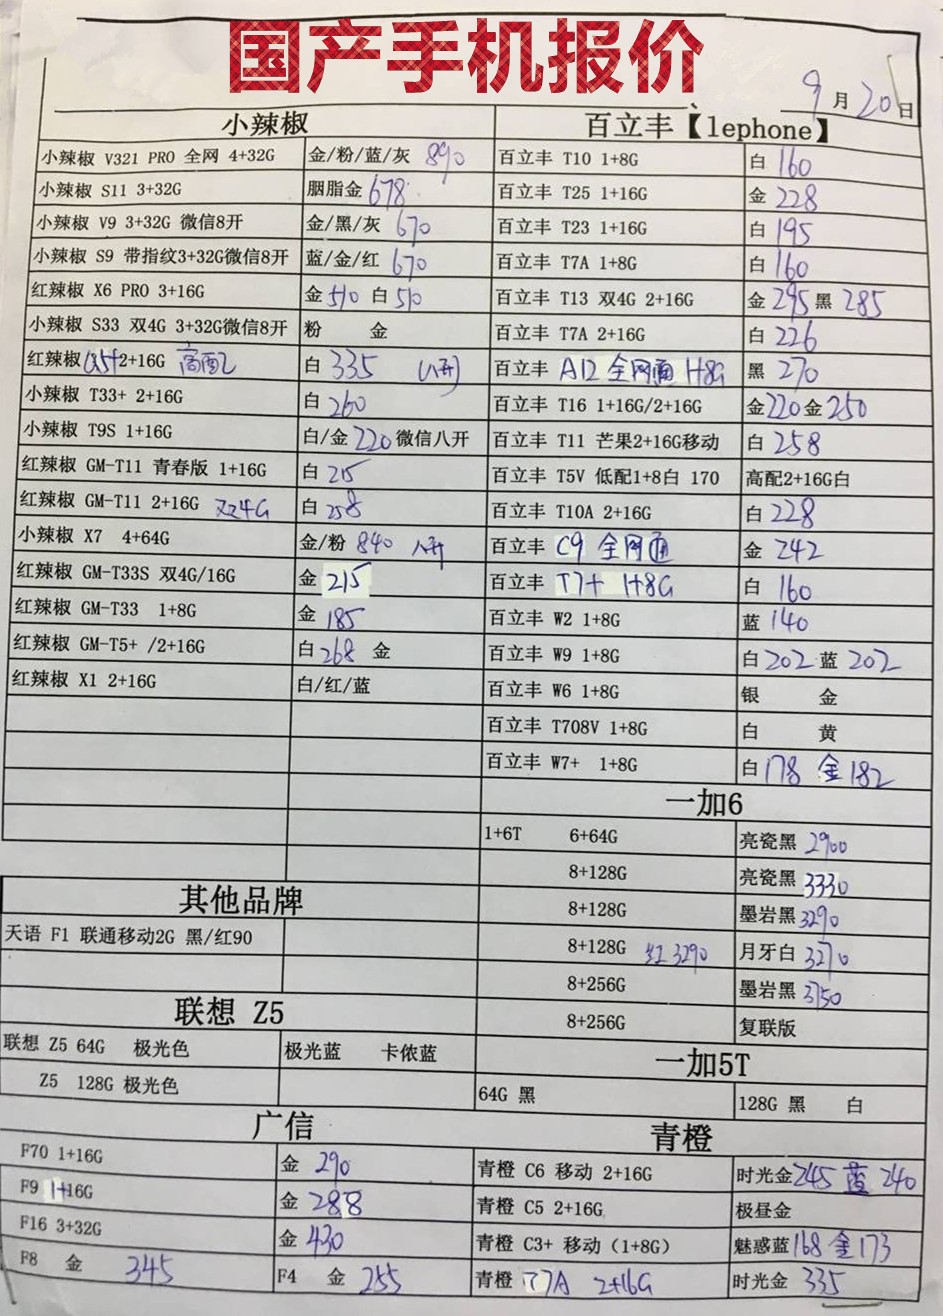 国产手机报价
9月20日
小辣椒
小辣椒 V321 PRO 全网 4+32G 金/粉/蓝/灰 890
小辣椒 S11 3+32G 胭脂金 678
小辣椒 V9 3+32G 微信8开 金/黑/灰 670
小辣椒 S9 带指纹3+32G微信8开 蓝/金/红 670
红辣椒 X6 PRO 3+16G 金 510 白 510
小辣椒 S33 双4G 3+32G微信8开 粉 金
红辣椒 2+16G 高配 白 335 八开
小辣椒 T33+ 2+16G 白 260
小辣椒 T9S 1+16G 白/金 220 微信八开
红辣椒 GM-T11 青春版 1+16G 白 215
红辣椒 GM-T11 2+16G 双4G 白 258
小辣椒 X7 4+64G 金/粉 840 八开
红辣椒 GM-T33S 双4G/16G 金 215
红辣椒 GM-T33 1+8G 金 185
红辣椒 GM-T5+ /2+16G 白 268 金
红辣椒 X1 2+16G 白/红/蓝
其他品牌
天语 F1 联通移动2G 黑/红90
联想 Z5
联想 Z5 64G 极光色 极光蓝 卡侬蓝
Z5 128G 极光色
广信
F70 1+16G 金 290
F9 1+16G 金 288
F16 3+32G 金 430
F8 金 345 F4 金 255
百立丰【lephone】
百立丰 T10 1+8G 白 160
百立丰 T25 1+16G 金 228
百立丰 T23 1+16G 白 195
百立丰 T7A 1+8G 白 160
百立丰 T13 双4G 2+16G 金 295 黑 285
百立丰 T7A 2+16G 白 226
百立丰 A12 全网通 1+8G 黑 270
百立丰 T16 1+16G/2+16G 金220 金250
百立丰 T11 芒果2+16G移动 白 258
百立丰 T5V 低配1+8白 170 高配2+16G白
百立丰 T10A 2+16G 白 228
百立丰 C9 全网通 金 242
百立丰 T7+ 1+8G 白 160
百立丰 W2 1+8G 蓝 140
百立丰 W9 1+8G 白 202 蓝 202
百立丰 W6 1+8G 银 金
百立丰 T708V 1+8G 白 黄
百立丰 W7+ 1+8G 白 178 金 182
一加6
1+6T 6+64G 亮瓷黑 2900
8+128G 亮瓷黑 3330
8+128G 墨岩黑 3290
8+128G 红 3290 月牙白 3270
8+256G 墨岩黑 3750
8+256G 复联版
一加5T
64G 黑 128G 黑 白
青橙
青橙 C6 移动 2+16G 时光金 245 蓝 240
青橙 C5 2+16G 极昼金
青橙 C3+ 移动（1+8G） 魅惑蓝 168 金 173
青橙 T7A 2+16G 时光金 335